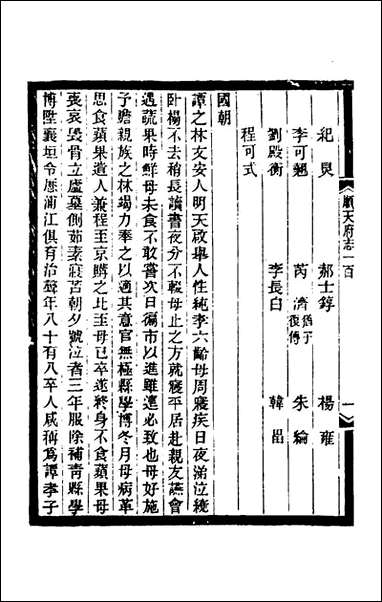 紀炅 郝士錞 楊雍
李可翹 芮濟 猶子復傳 朱綸
劉殿衡 李長白 韓皛
程可式
順天府志一百 一
國朝
譚之林文安人明天啟舉人性純孝六齡母周寢疾日夜涕泣繞
臥榻不去稍長讀書夜分不輟母止之方就寢平居赴親友讌會
遇蔬果時鮮母未食不敢嘗次日徧市以進雖遠必致也母好施
予贍親族之林竭力奉之以適其意官無極縣學博冬月母病革
思食蘋果遣人兼程至京購之比至母已卒遂終身不食蘋果母
喪哀毀骨立廬墓側茹素寢苫朝夕號泣者三年服除補青縣學
博陞襄垣令歷浦江俱有治聲年八十有八卒人咸稱為譚孝子